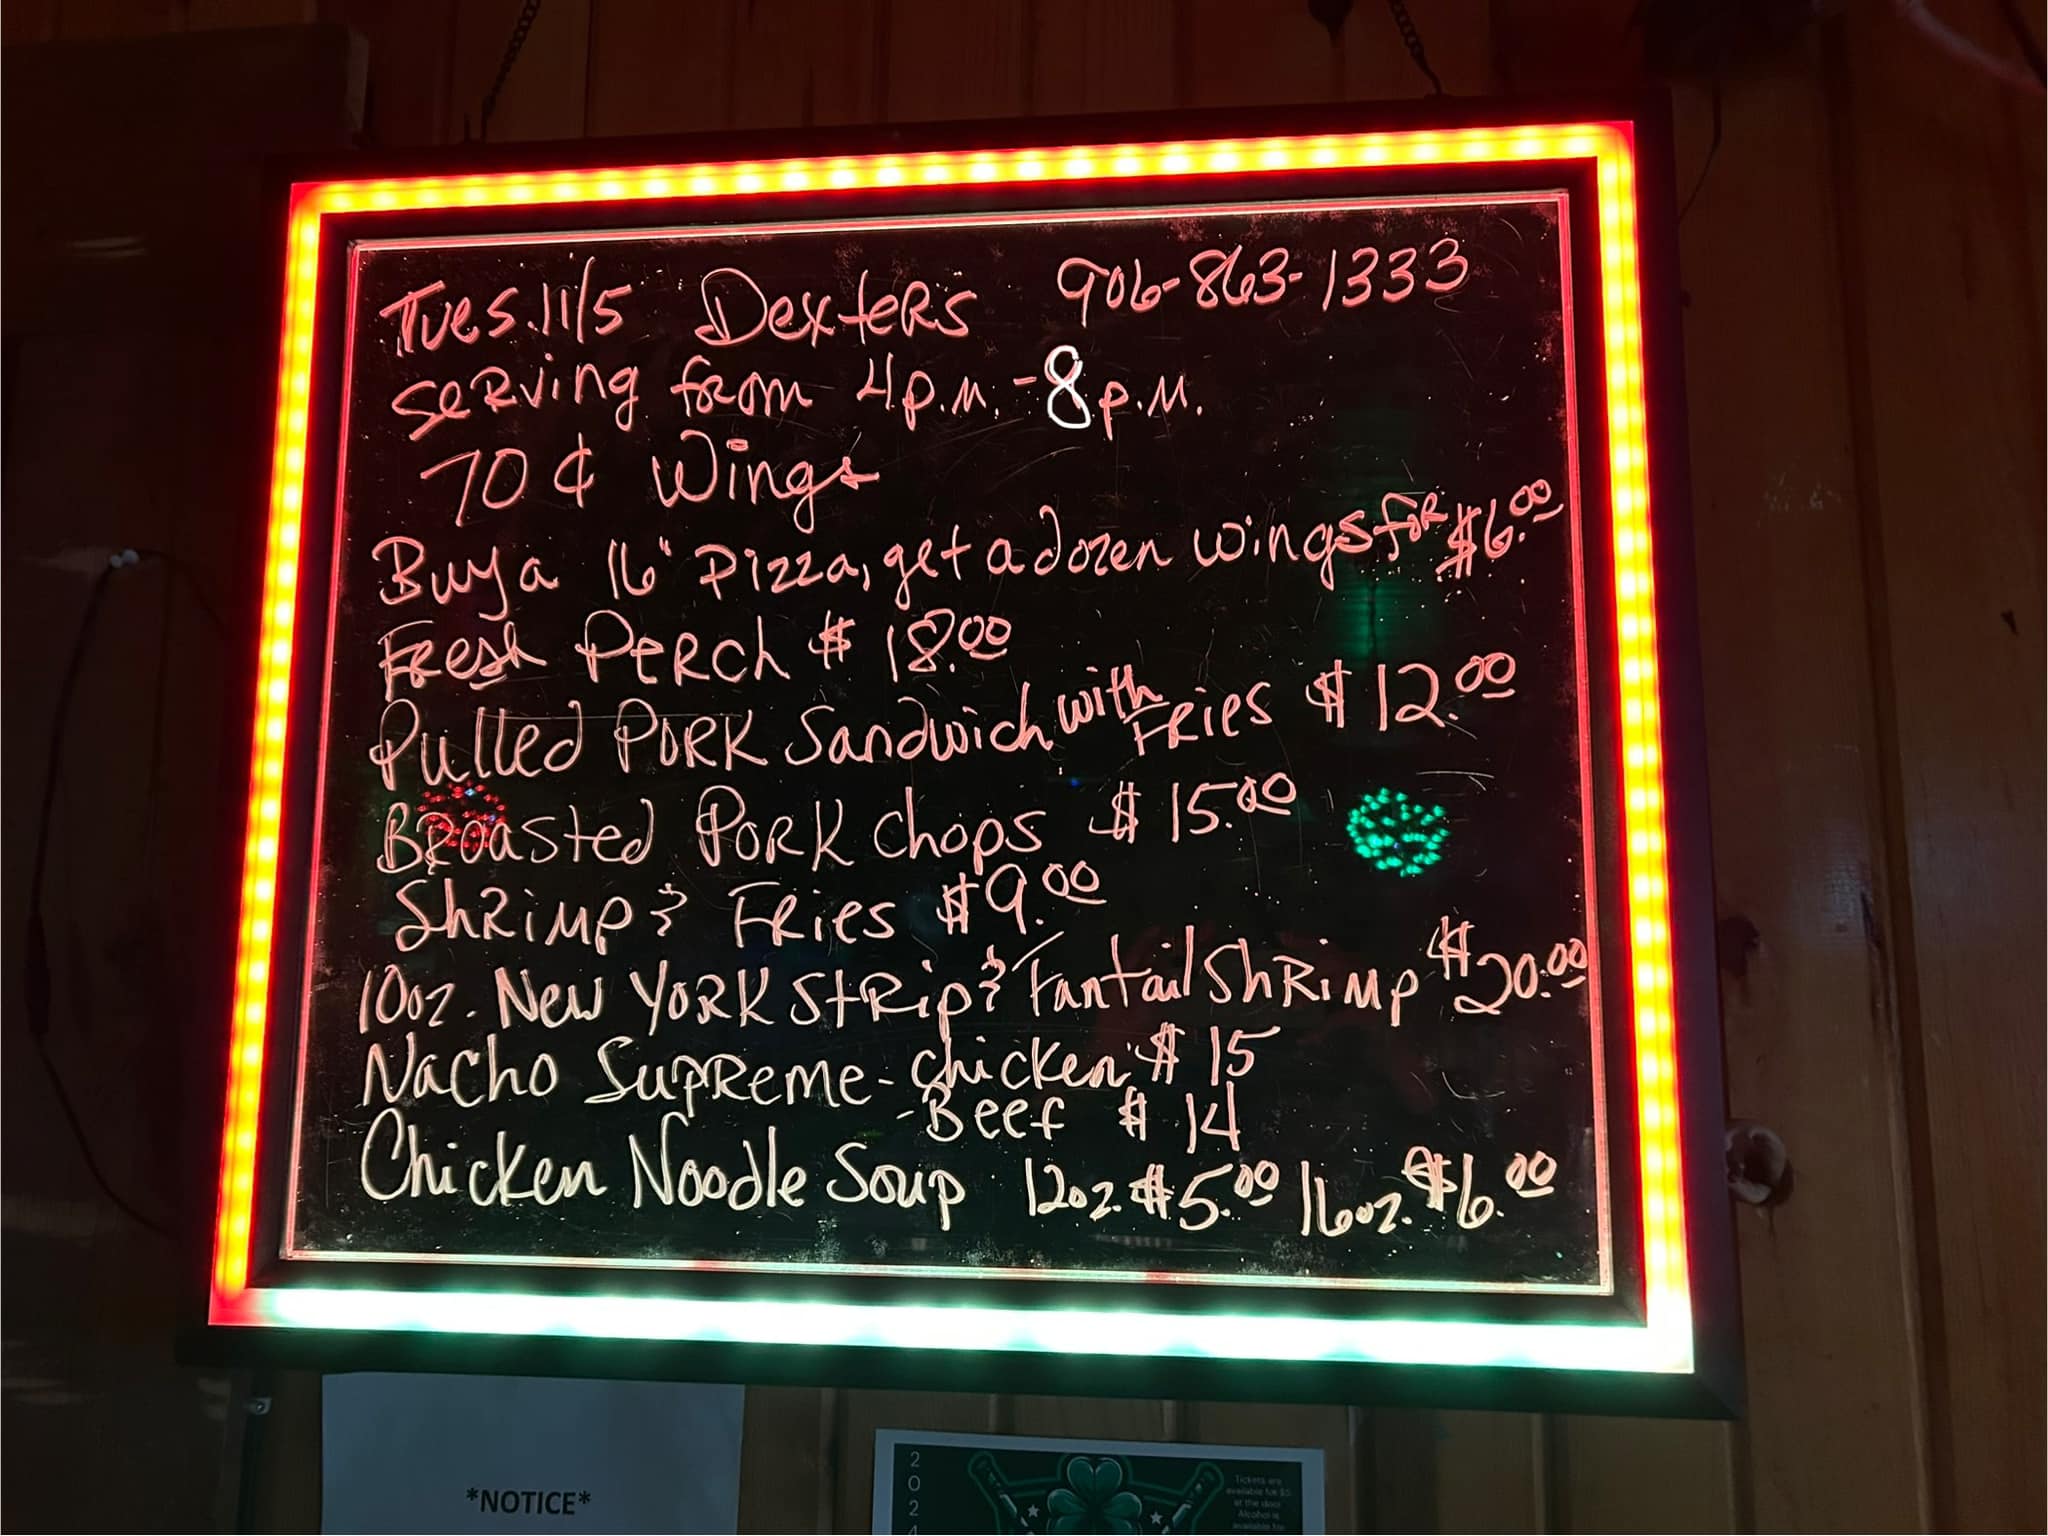 Tues. 11/5 Dexters 906-863-1333
Serving from 4 p.m. - 8 p.m.
70¢ Wings
Buy a 16" Pizza, get a dozen wings for $6.00
Fresh Perch $18.00
Pulled Pork Sandwich with Fries $12.00
Broasted Pork Chops $15.00
Shrimp & Fries $9.00
10oz. New York Strip & Fantail Shrimp $20.00
Nacho Supreme - Chicken $15
- Beef $14
Chicken Noodle Soup 12oz. $5.00 16oz. $6.00
*NOTICE*
2024
Tickets are
available for $5
at the door
Alcohol is
available for